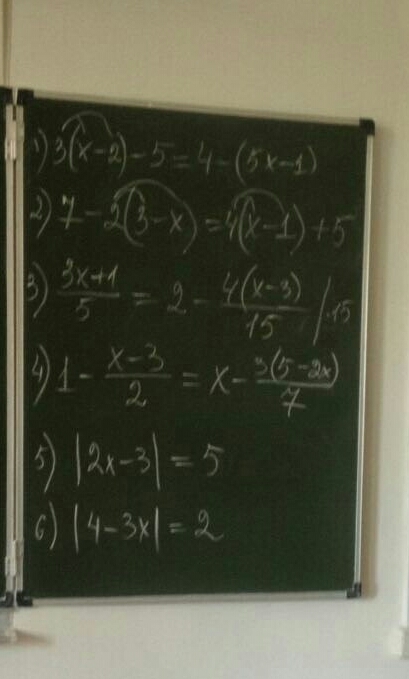 1) 3(x-2)-5=4-(5x-1)
2) 7-2(3-x)=4(x-1)+5
3) (3x+1)/5 = 2 - 4(x-3)/15 /·15
4) 1 - (x-3)/2 = x - 3(5-2x)/7
5) |2x-3|=5
6) |4-3x|=2